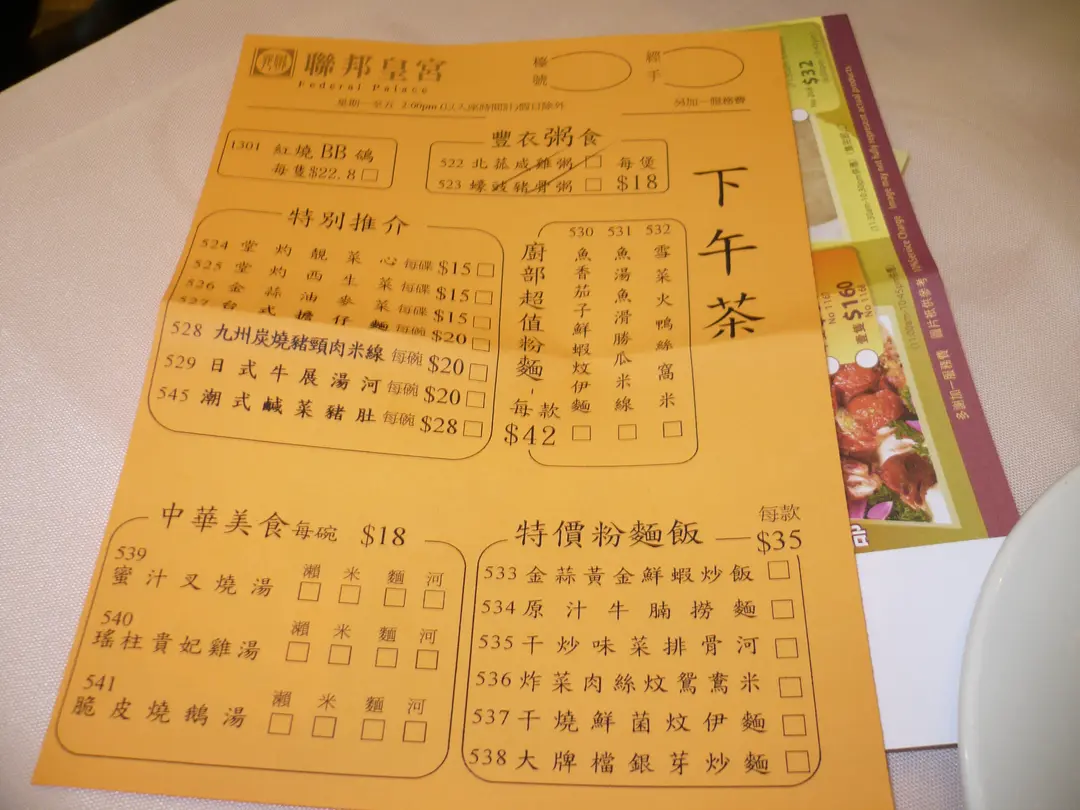 聯邦皇宮
Federal Palace
檯號
經手
星期一至五 2:00pm
另加一服務費
1301 紅燒BB鴿
每隻$22.8
豐衣粥食
522 北菇咸雞粥 每煲
523 蠔豉豬骨粥 $18
下午茶
特別推介
524 堂灼靚菜心 每碟 $15
525 堂灼西生菜 每碟 $15
526 金蒜油麥菜 每碟 $15
527 台式擔仔麵 每碗 $20
528 九州炭燒豬頸肉米線 每碗 $20
529 日式牛展湯河 每碗 $20
545 潮式鹹菜豬肚 每碗 $28
廚部超值粉麵-每款
$42
530 魚香茄子鮮蝦炆伊麵
531 魚湯魚滑勝瓜米線
532 雪菜火鴨絲窩米
中華美食 每碗 $18
539
蜜汁叉燒湯 瀨 米 麵 河
540
瑤柱貴妃雞湯 瀨 米 麵 河
541
脆皮燒鵝湯 瀨 米 麵 河
特價粉麵飯 — 每款
$35
533 金蒜黃金鮮蝦炒飯
534 原汁牛腩撈麵
535 干炒味菜排骨河
536 炸菜肉絲炆鴛鴦米
537 干燒鮮菌炆伊麵
538 大牌檔銀芽炒麵
$32
$160
No 116
多謝加一服務費 圖片祇供參考
Service Charge Image may not fully represent actual products
品